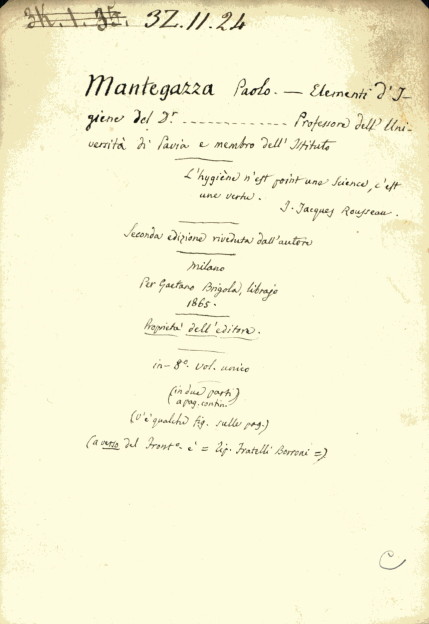 3K.1.35. 3Z.11.24
Mantegazza Paolo. — Elementi d'I-
giene del Dr. ............... Professore dell'Uni-
versità di Pavia e membro dell'Istituto
L'hygiène n'est point une science, c'est
une vertu.
J. Jacques Rousseau.
Seconda edizione riveduta dall'autore
Milano
Per Gaetano Brigola, librajo
1865.
Proprietà dell'editore.
in-8º. vol. unico
(in due parti)
(a pag. contin.
(V'è qualche fig. sulle pag.)
(a verso del Frontº. è = Tip. Fratelli Borroni =)
C